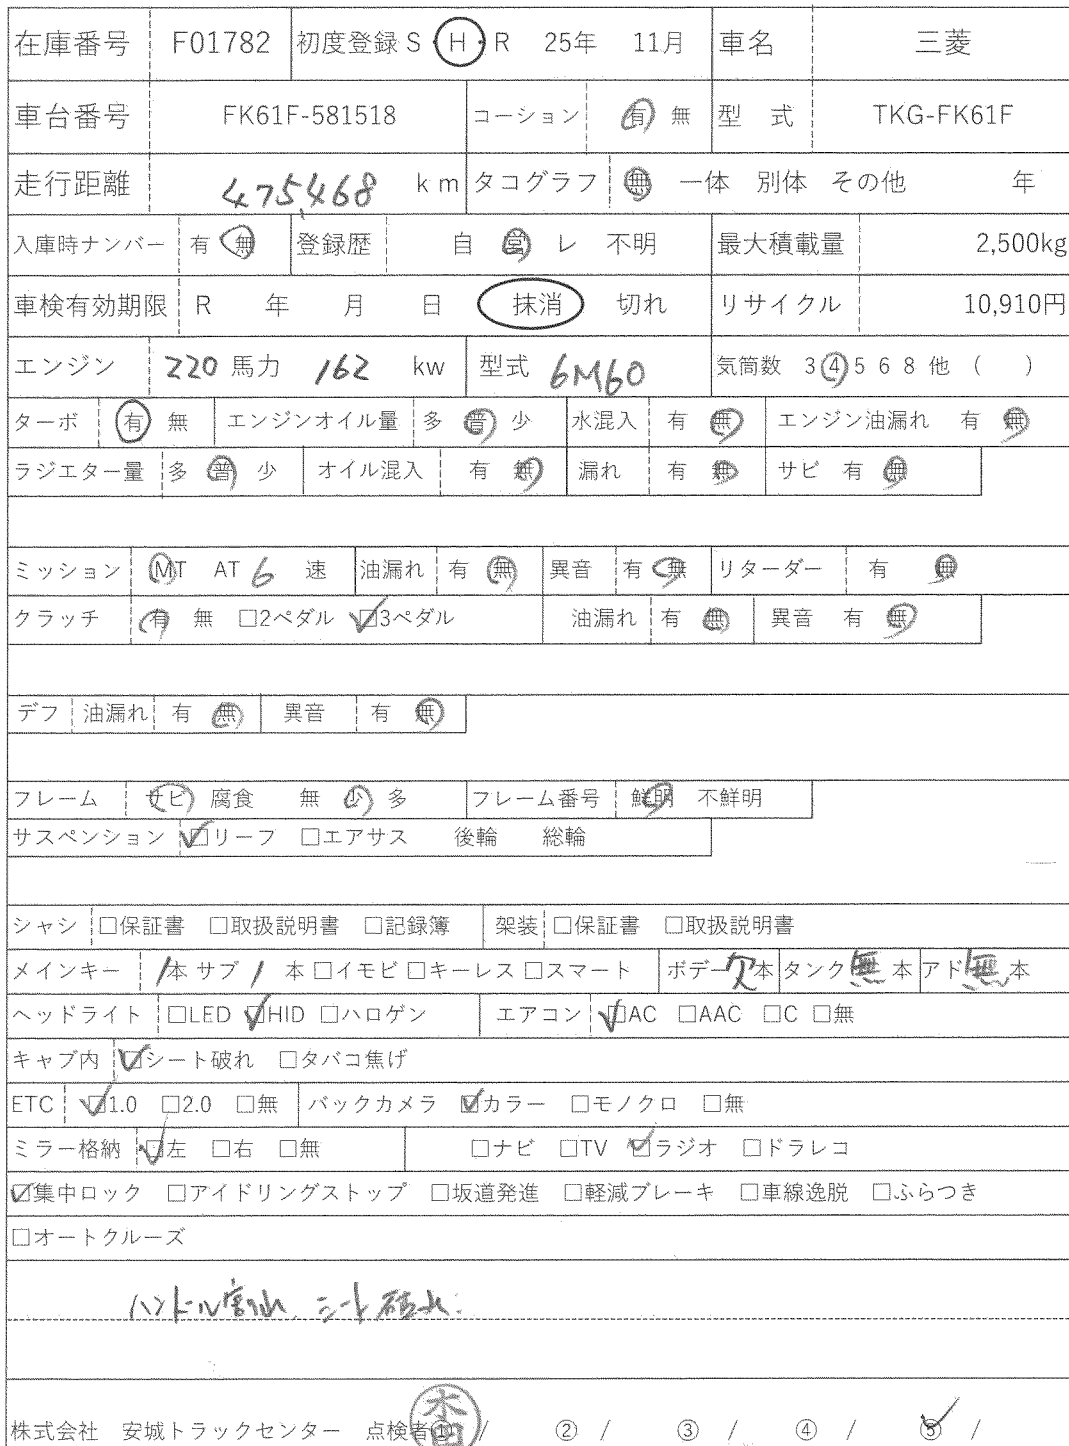 在庫番号 F01782 初度登録 S H R 25年 11月 車名 三菱
車台番号 FK61F-581518 コーション 有 無 型 式 TKG-FK61F
走行距離 475,468 km タコグラフ 無 一体 別体 その他 年
入庫時ナンバー 有 無 登録歴 自 営 レ 不明 最大積載量 2,500kg
車検有効期限 R 年 月 日 抹消 切れ リサイクル 10,910円
エンジン 220 馬力 162 kw 型式 6M60 気筒数 3 4 5 6 8 他 ( )
ターボ 有 無 エンジンオイル量 多 普 少 水混入 有 無 エンジン油漏れ 有 無
ラジエター量 多 普 少 オイル混入 有 無 漏れ 有 無 サビ 有 無
ミッション MT AT 6 速 油漏れ 有 無 異音 有 無 リターダー 有 無
クラッチ 有 無 □2ペダル ☑3ペダル 油漏れ 有 無 異音 有 無
デフ 油漏れ 有 無 異音 有 無
フレーム サビ 腐食 無 少 多 フレーム番号 鮮明 不鮮明
サスペンション ☑リーフ □エアサス 後輪 総輪
シャシ □保証書 □取扱説明書 □記録簿 架装 □保証書 □取扱説明書
メインキー 1本 サブ 1 本 □イモビ □キーレス □スマート ボデー欠本 タンク無本 アド無本
ヘッドライト □LED ☑HID □ハロゲン エアコン ☑AC □AAC □C □無
キャブ内 ☑シート破れ □タバコ焦げ
ETC ☑1.0 □2.0 □無 バックカメラ ☑カラー □モノクロ □無
ミラー格納 ☑左 □右 □無 □ナビ □TV ☑ラジオ □ドラレコ
☑集中ロック □アイドリングストップ □坂道発進 □軽減ブレーキ □車線逸脱 □ふらつき
□オートクルーズ
ハンドル割れ シート破れ
株式会社 安城トラックセンター 点検者① / ② / ③ / ④ / ⑤ /